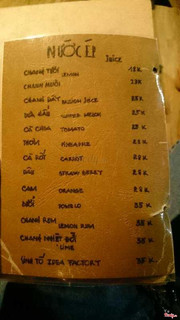 NƯỚC ÉP JUICE
CHANH TƯƠI LEMON 18K
CHANH MUỐI 22K
CHANH DÂY PASSION JUICE 25K
DƯA HẤU WATER MELON 25K
CÀ CHUA TOMATO 25K
THƠM PINEAPPLE 25K
CÀ RỐT CARROT 25K
DÂU STRAWBERRY 25K
CAM ORANGE 25K
BƯỞI POMELO 35K
CHANH KEM LEMON KEM 35K
CHANH NHIỆT ĐỚI 35K
LIME
SINH TỐ IDEA FACTORY 35K